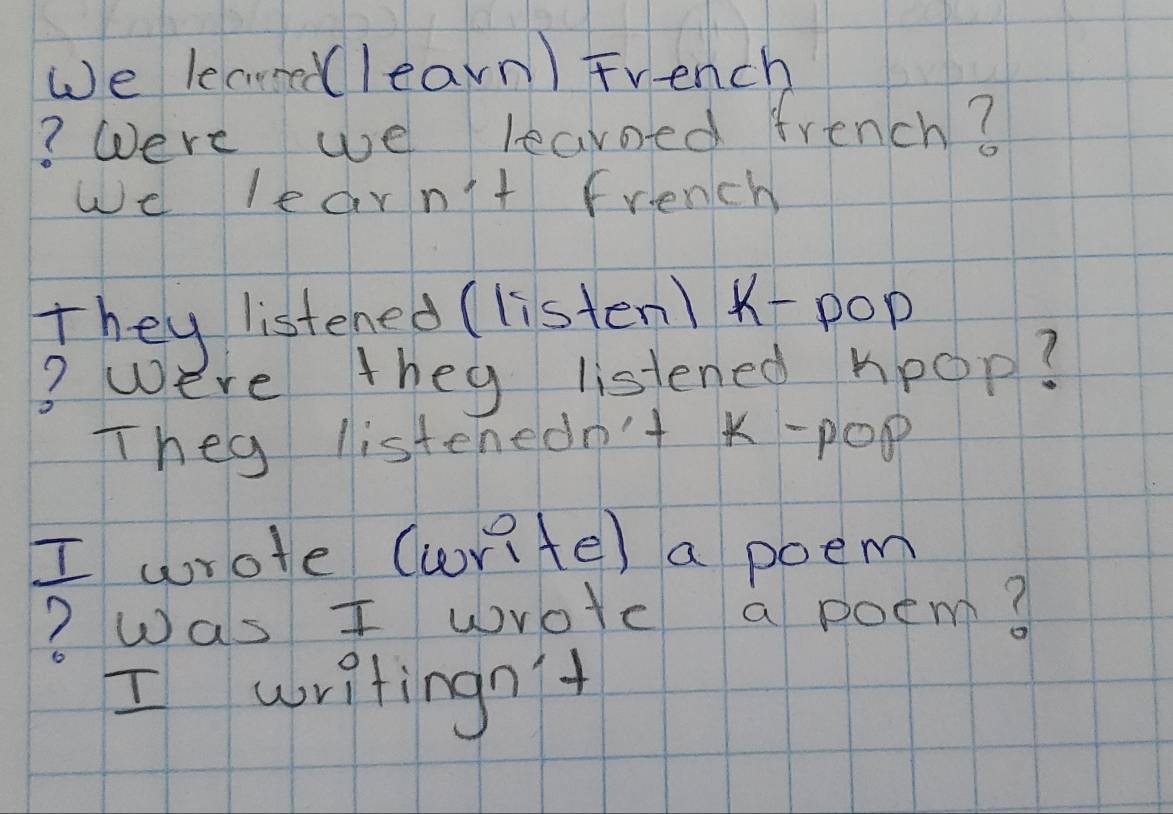 We learned (learn) French
? Were we learned french?
We learn't french
They listened (listen) K-pop
? Were they listened kpop?
They listenedn't K-pop
I wrote (write) a poem
? Was I wrote a poem?
I writingn't